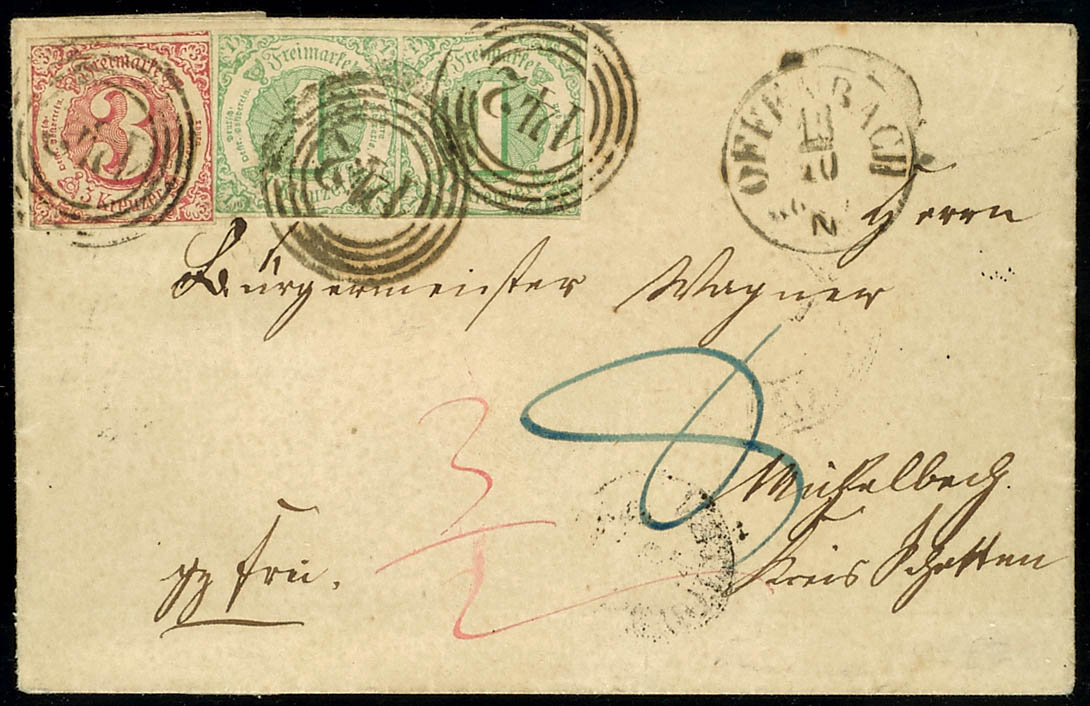 Freimarke
3
3 Kreuzer
Freimarke
Freimarke
1
142
142
142
OFFENBACH
18
10
N
Herrn
Bürgermeister Wagner
8
3
2
Michelbach.
Kreis Schotten
frei.